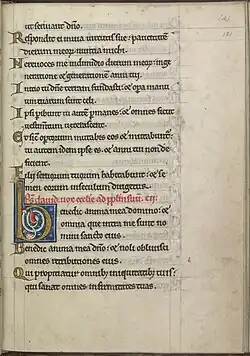 ut serviant dño.
Respondit ei in via virtutis sue: paucitatem
dierum meoꝝ nuncia michi.
Ne revoces me in dimidio dierum meoꝝ: in ge
neratione ⁊ generationem anni tui.
Inicio tu dñe terram fundasti: ⁊ opera manu
um tuarum sunt celi.
Ipsi peribunt tu autem pmanes: ⁊ omnes sicut
vestimentum veterascent.
Et sic opertorium mutabis eos ⁊ mutabuntur:
tu autem idem ipse es: ⁊ anni tui non de
ficient.
Filij servorum tuorum habitabunt: ⁊ se
men eorum in seculum dirigetur.
Benedic anima mea domino: ⁊
omnia que intra me sunt no
mini sancto eius.
Benedic anima mea dño: ⁊ noli oblivisci
omnes retributiones eius.
Qui propiciatur omnibꝫ iniquitatibꝫ tuis:
qui sanat omnes infirmitates tuas.